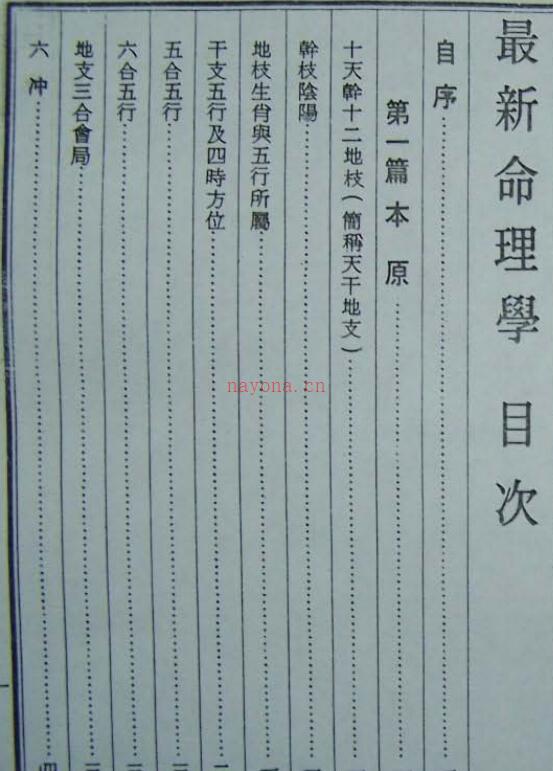 最新命理學 目次
自序
第一篇 本原
十天幹十二地枝(簡稱天干地支)
幹枝陰陽
地枝生肖與五行所屬
干支五行及四時方位
五合五行
六合五行
地支三合會局
六冲
nayona.cn